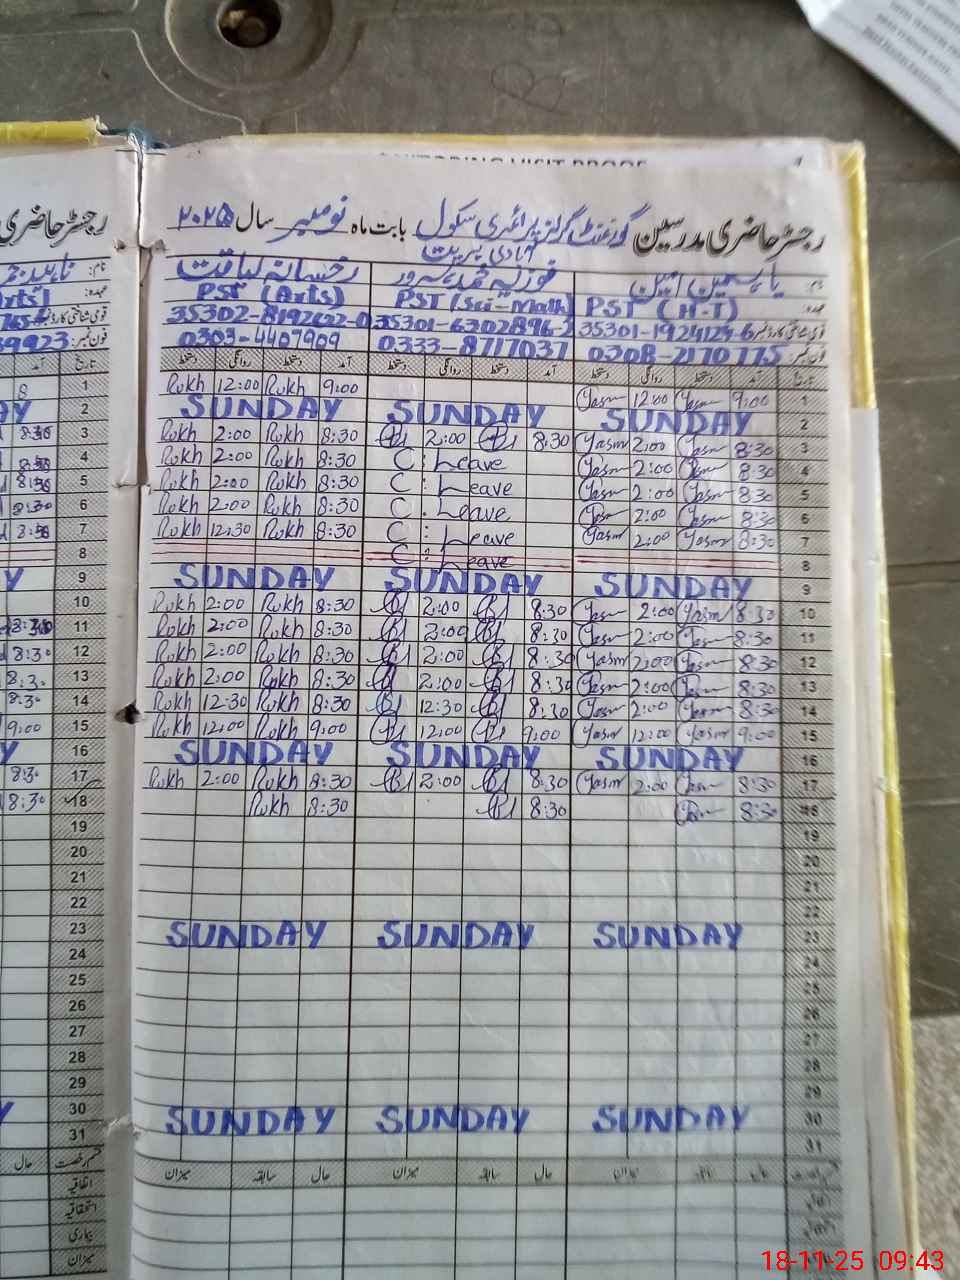 MONITORING VISIT PROOF
رجسٹر حاضری مدرسین گورنمنٹ گرلز پرائمری سکول بابت ماہ نومبر سال ۲۰۲۵
آبادی
نام: یاسمین امین فوزیہ محمد سرور رخسانہ لیاقت
عہدہ: PST (H-T) PST (Sci-Math) PST (Arts)
قومی شناختی کارڈ نمبر 35301-1924124-6 35301-6302896-2 35302-8192622-0
فون نمبر: 0308-2170775 0333-8717037 0303-4407909
تاریخ آمد دستخط روانگی دستخط آمد دستخط روانگی دستخط آمد دستخط روانگی دستخط
1 Rukh 12:00 Rukh 9:00 Yasm 12:00 Yasm 9:00 1
2 SUNDAY SUNDAY SUNDAY 2
8:30 3 Rukh 2:00 Rukh 8:30 2:00 8:30 Yasm 2:00 Yasm 8:30 3
4 Rukh 2:00 Rukh 8:30 C: Leave Yasm 2:00 Yasm 8:30 4
5 Rukh 2:00 Rukh 8:30 C: Leave Yasm 2:00 Yasm 8:30 5
8:30 6 Rukh 2:00 Rukh 8:30 C: Leave Yasm 2:00 Yasm 8:30 6
7 Rukh 12:30 Rukh 8:30 C: Leave Yasm 2:00 Yasm 8:30 7
8 C: Leave 8
9 SUNDAY SUNDAY SUNDAY 9
10 Rukh 2:00 Rukh 8:30 2:00 8:30 Yasm 2:00 Yasm 8:30 10
11 Rukh 2:00 Rukh 8:30 2:00 8:30 Yasm 2:00 Yasm 8:30 11
8:30 12 Rukh 2:00 Rukh 8:30 2:00 8:30 Yasm 2:00 Yasm 8:30 12
8:30 13 Rukh 2:00 Rukh 8:30 2:00 8:30 Yasm 2:00 Yasm 8:30 13
8:30 14 Rukh 12:30 Rukh 8:30 12:30 8:30 Yasm 2:00 Yasm 8:30 14
9:00 15 Rukh 12:00 Rukh 9:00 12:00 9:00 Yasm 12:00 Yasm 9:00 15
16 SUNDAY SUNDAY SUNDAY 16
8:30 17 Rukh 2:00 Rukh 8:30 2:00 8:30 Yasm 2:00 Yasm 8:30 17
8:30 18 Rukh 8:30 8:30 Yasm 8:30 18
19 19
20 20
21 21
22 22
23 SUNDAY SUNDAY SUNDAY 23
24 24
25 25
26 26
27 27
28 28
29 29
30 SUNDAY SUNDAY SUNDAY 30
31 31
حال سابقہ میزان حال سابقہ میزان حال سابقہ میزان
اتفاقیہ
استحقاقیہ
بیماری
میزان
18-11-25 09:43